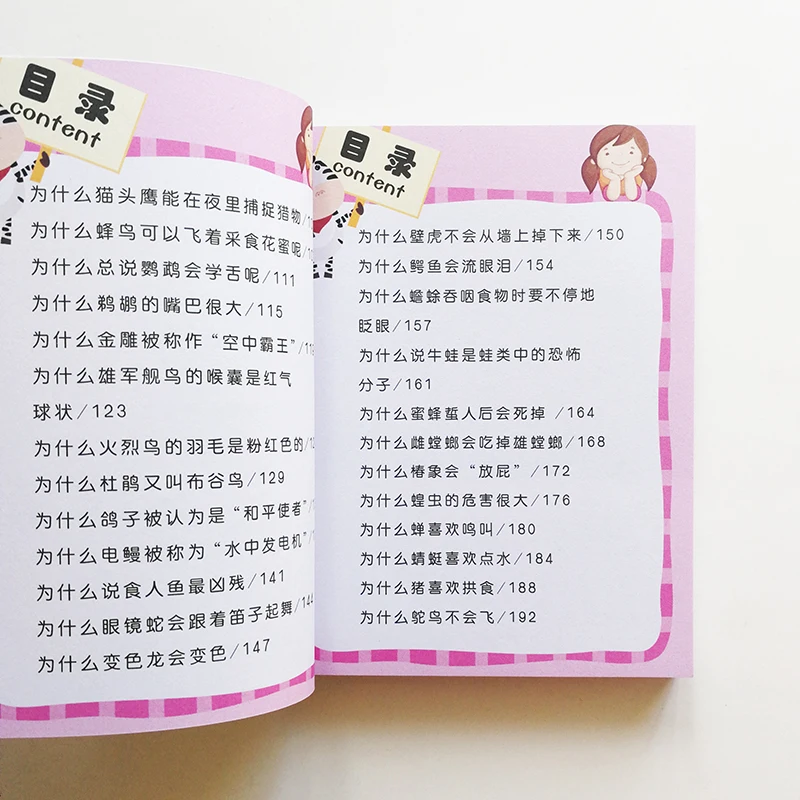 目录
content
为什么猫头鹰能在夜里捕捉猎物/
为什么蜂鸟可以飞着采食花蜜呢/
为什么总说鹦鹉会学舌呢/111
为什么鹈鹕的嘴巴很大/115
为什么金雕被称作“空中霸王”/
为什么雄军舰鸟的喉囊是红气
球状/123
为什么火烈鸟的羽毛是粉红色的/
为什么杜鹃又叫布谷鸟/129
为什么鸽子被认为是“和平使者”/
为什么电鳗被称为“水中发电机”/
为什么说食人鱼最凶残/141
为什么眼镜蛇会跟着笛子起舞/144
为什么变色龙会变色/147
目录
content
为什么壁虎不会从墙上掉下来/150
为什么鳄鱼会流眼泪/154
为什么蟾蜍吞咽食物时要不停地
眨眼/157
为什么说牛蛙是蛙类中的恐怖
分子/161
为什么蜜蜂蜇人后会死掉 /164
为什么雌螳螂会吃掉雄螳螂/168
为什么椿象会“放屁”/172
为什么蝗虫的危害很大/176
为什么蝉喜欢鸣叫/180
为什么蜻蜓喜欢点水/184
为什么猪喜欢拱食/188
为什么鸵鸟不会飞/192